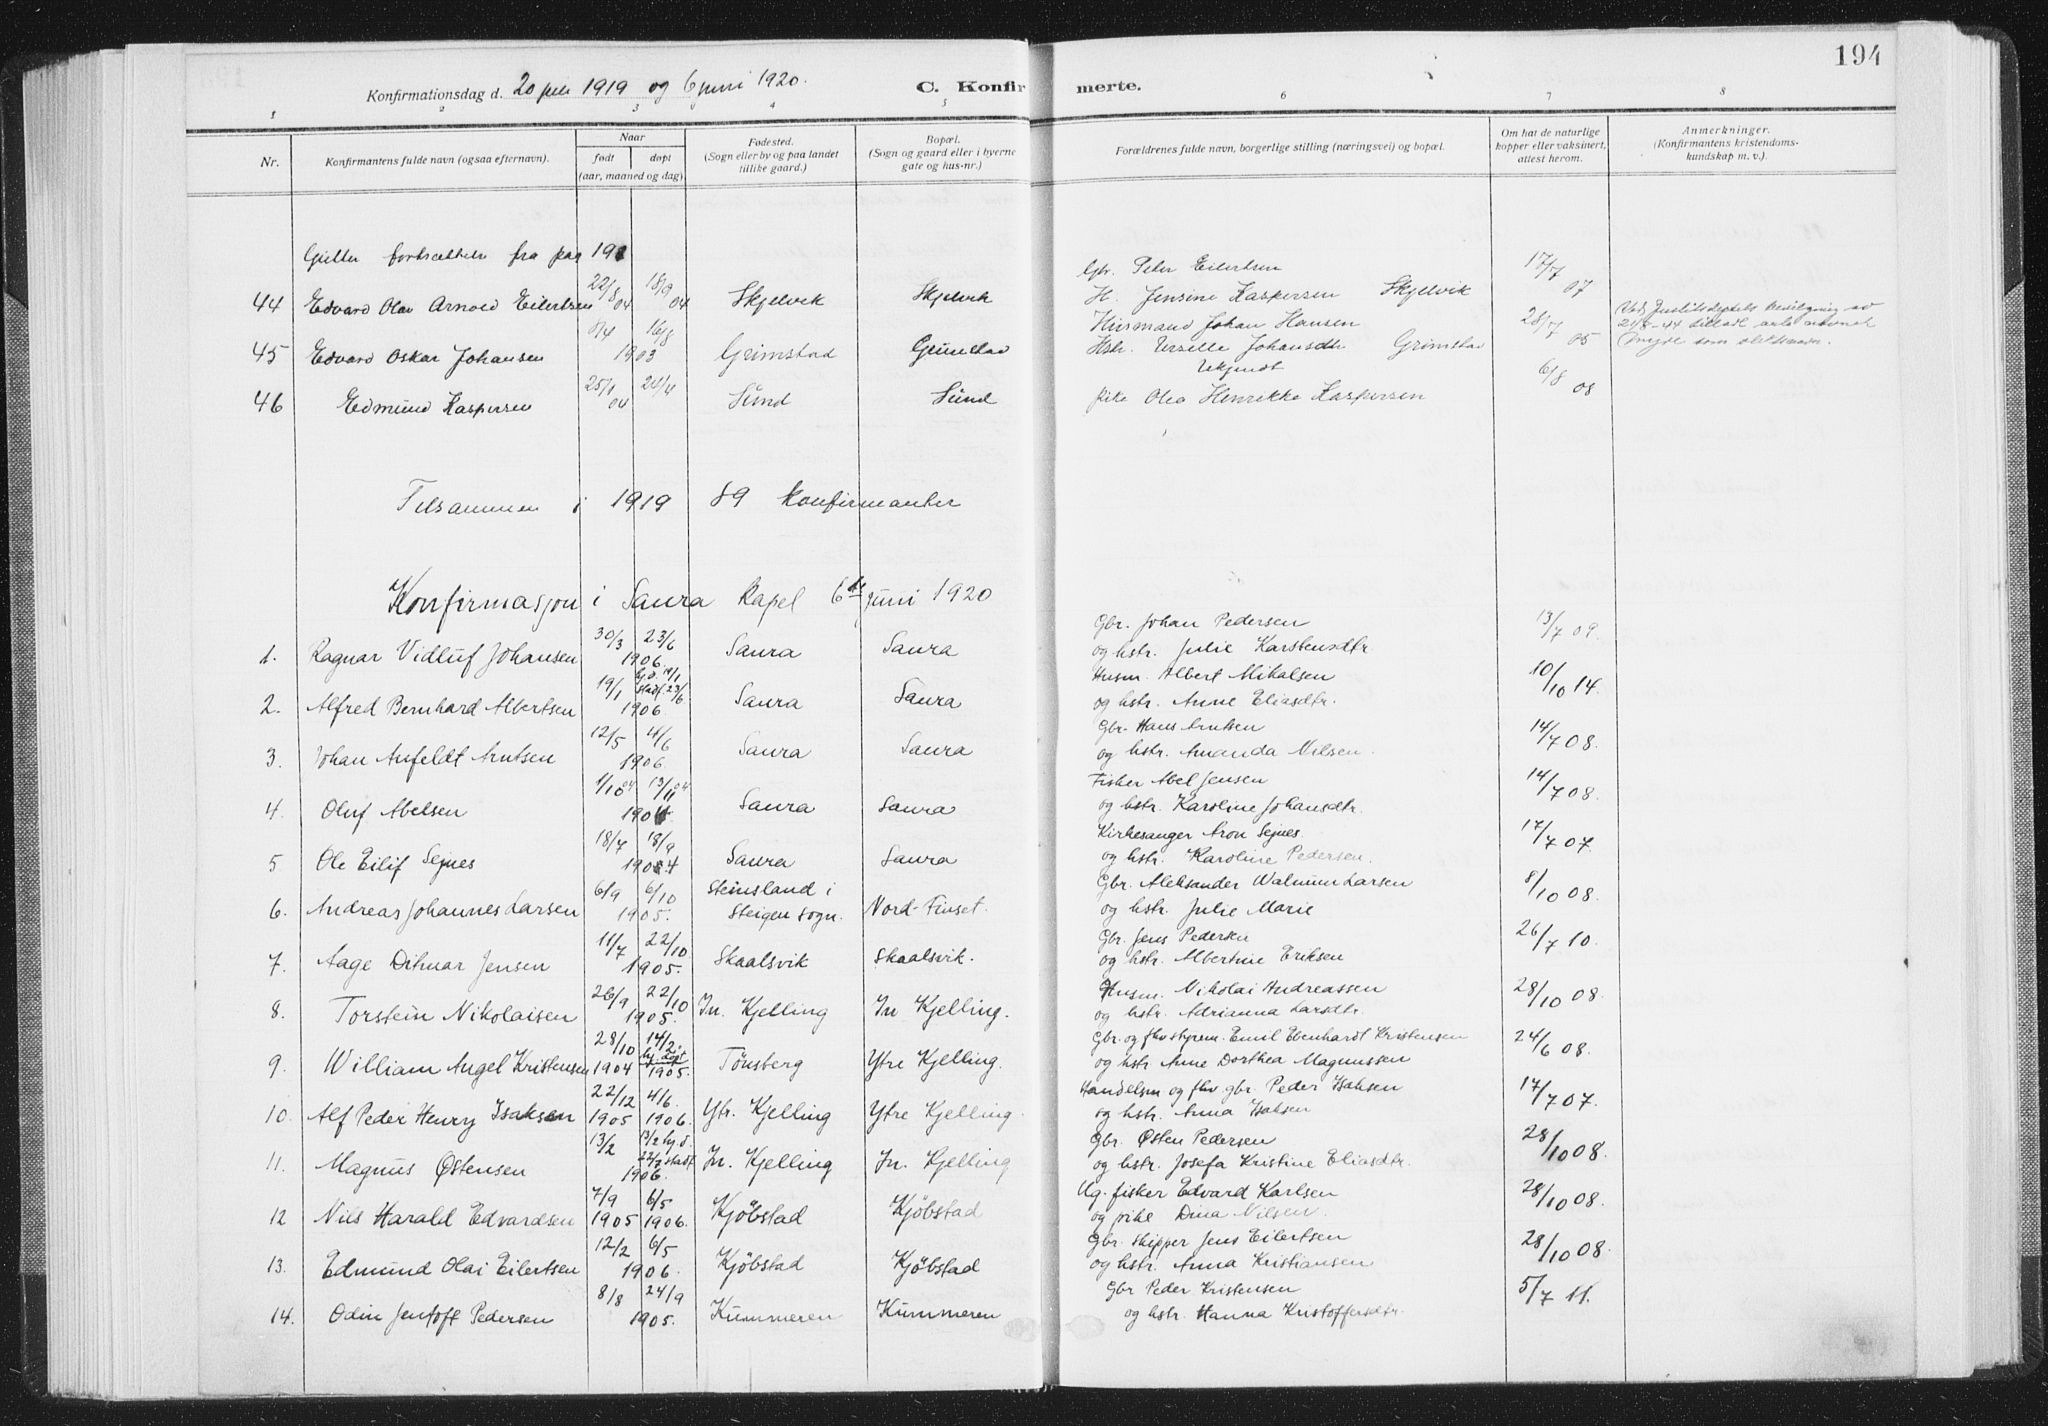 194
Konfirmationsdag d. 20 juli 1919 og 6 juni 1920. C. Konfirmerte.
1 2 3 4 5 6 7 8
Nr. Konfirmantens fulde navn (ogsaa efternavn). Naar født døpt (aar, maaned og dag) Fødested. (Sogn eller by og paa landet tillike gaard.) Bopæl. (Sogn og gaard eller i byerne gate og hus-nr.) Forældrenes fulde navn, borgerlige stilling (næringsvei) og bopæl. Om hat de naturlige kopper eller vaksinert, attest herom. Anmerkninger. (Konfirmantens kristendomskundskap m. v.).
Gutter fortsættelse fra pag 191
44 Edvard Olav Arnold Eilertsen 22/8 04 18/9 04 Skjelvik Skjelvik Gbr. Peter Eilertsen
H. Jensine Kaspersen Skjelvik 17/7 07
45 Edvard Oskar Johansen 8/4 16/8 1903 Grimstad Grimstad Husmand Johan Hansen
Hstr. Johansdtr Grimstad 28/7 05 Ved Justitsdeptets bevilgning av
21/8-44 tillatt
som slektsnavn.
46 Edmund Kaspersen 25/1 04 24/4 Sund Sund Ukjendt
pike Olea Henrikke Kaspersen 6/8 08
Tilsammen i 1919 89 konfirmanter
Konfirmasjon i Saura Kapel 6te juni 1920
1. Ragnar Vidluf Johansen 30/3 23/6 1906. Saura Saura Gbr. Johan Pedersen
og hstr. Julie Karstensdtr. 13/7 09.
2. Alfred Bernhard Albertsen 19/1 hj.d. 19/1 stadf. 23/6 1906 Saura Saura Husm. Albert Mikalsen
og hstr. Anne Eliasdtr. 10/10 14.
3. Johan Anfeldt Arntsen 12/5 4/6 1906. Saura Saura Gbr. Hans Arntsen
og hstr. Amanda Nilsen. 14/7 08.
4. Oluf Abelsen 1/10 04 13/11 04 1904 Saura Saura Fisker Abel Jensen
og hstr. Karoline Johansdtr. 14/7 08.
5 Ole Eilif Sejnes 18/7 18/9 1904 Saura Saura Kirkesanger Aron Sejnes.
og hstr. Karoline Pedersen. 17/7 07.
6. Andreas Johannes Larsen 6/9 6/10 1905. Steinsland i Steigen sogn. Nord-Finset. Gbr. Aleksander Walnum Larsen
og hstr. Julie Marie 8/10 08.
7. Aage Ditmar Jensen 11/7 22/10 1905. Skaalsvik Skaalsvik. Gbr. Jens Pedersen
og hstr. Albertine Eriksen 26/7 10.
8. Torstein Nikolaisen 26/9 22/10 1905. In. Kjelling In Kjelling. Husm. Nikolai Andreassen
og hstr. Adrianna Larsdtr. 28/10 08.
9. William Angel Kristensen 28/10 1904 14/2 hj. døpt 1905. Tønsberg Ytre Kjelling. Gbr. og fhv styrem. Emil Ebenhardt Kristensen
og hstr Anne Dorthea Magnussen 24/6 08.
10. Alf Peder Henry Isaksen 22/12 1905 4/6. 1906. Ytr. Kjelling Ytre Kjelling. Handelsm og fhv. gbr. Peder Isaksen
og hstr. Anna Isaksen 17/7 07.
11. Magnus Østensen 13/2 13/2 hj.d. 22/7 stadf. 1906. In. Kjelling In. Kjelling Gbr. Østen Pedersen
og hstr. Josefa Kristine Eliasdtr. 28/10 08.
12 Nils Harald Edvardsen 7/9 1905 6/5 1906. Kjöbstad Kjöbstad Ug. fisker Edvard Karlsen
og pike Dina Nilsen. 28/10 08.
13. Edmund Olai Eilertsen 12/2 6/5 1906. Kjöbstad Kjöbstad Gbr. skipper Jens Eilertsen
og hstr. Anna Kristiansen 28/10 08.
14. Odin Jentoft Pedersen 8/8 24/9 1905. Kummeren Kummeren Gbr Peder Kristensen
og hstr. Hanna Kristoffersdtr. 5/7 11.